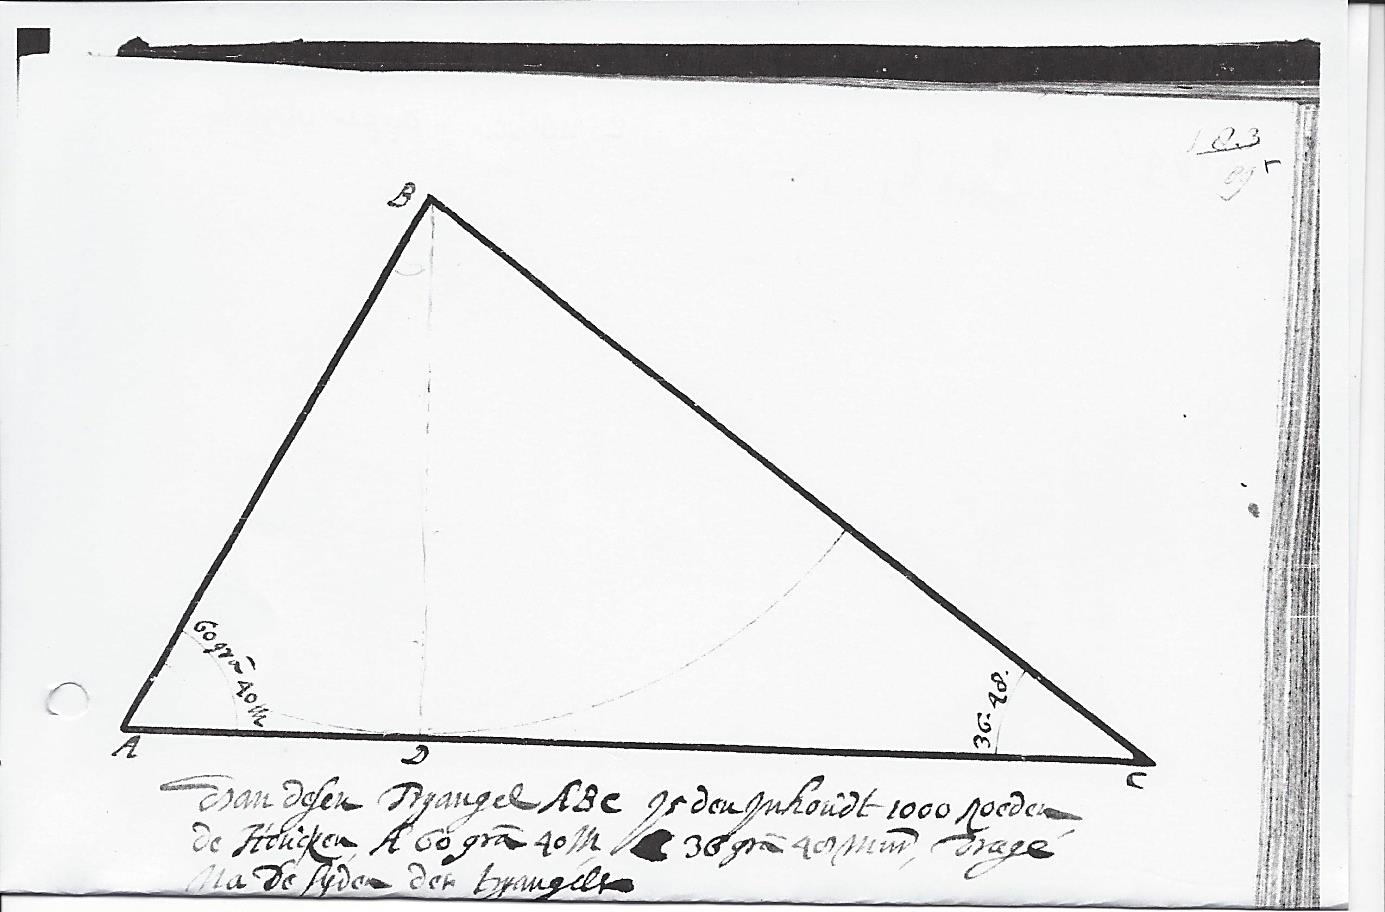 183
89r
B
60 grã 40 M
36-48.
A
D
C
Van desen Tryangel ABC Is den Inhoudt 1000 Roeden
de Houcken A 60 grã 40 M C 36 grã 48 Min, Vrage
Na De syden des tryangels